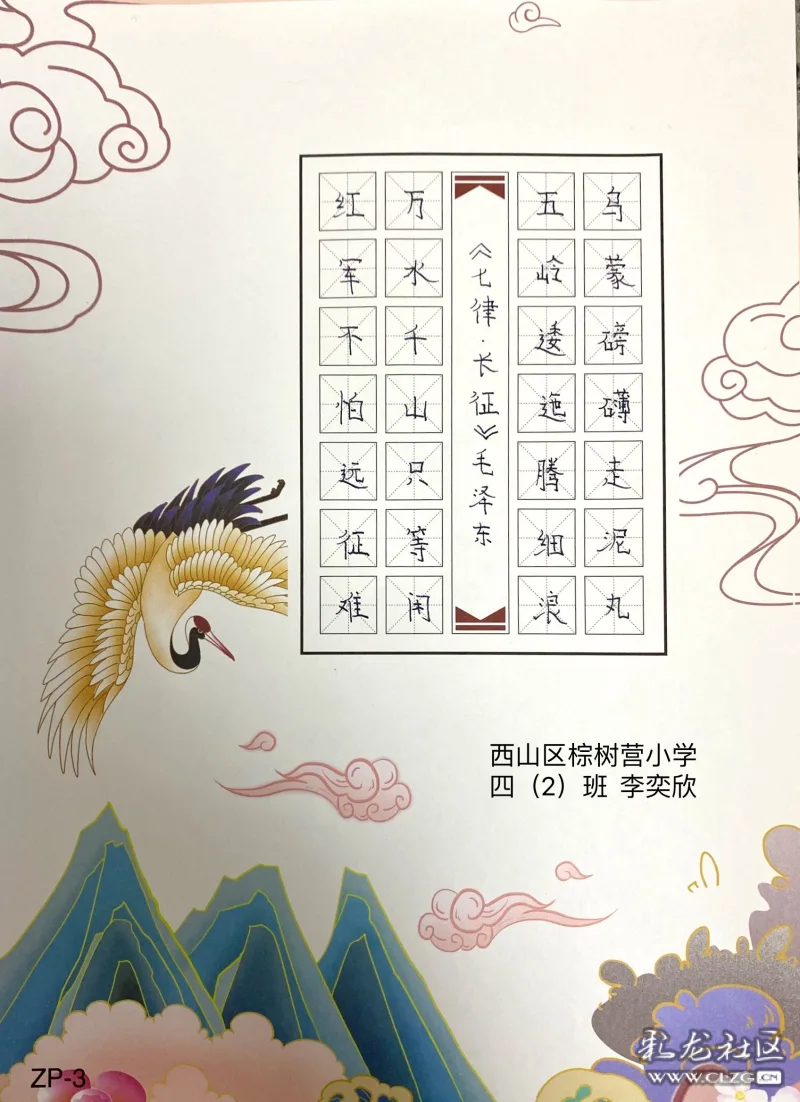 红军不怕远征难
万水千山只等闲
《七律·长征》毛泽东
五岭逶迤腾细浪
乌蒙磅礴走泥丸
西山区棕树营小学
四（2）班 李奕欣
ZP-3
彩龙社区
WWW.CLZG.CN